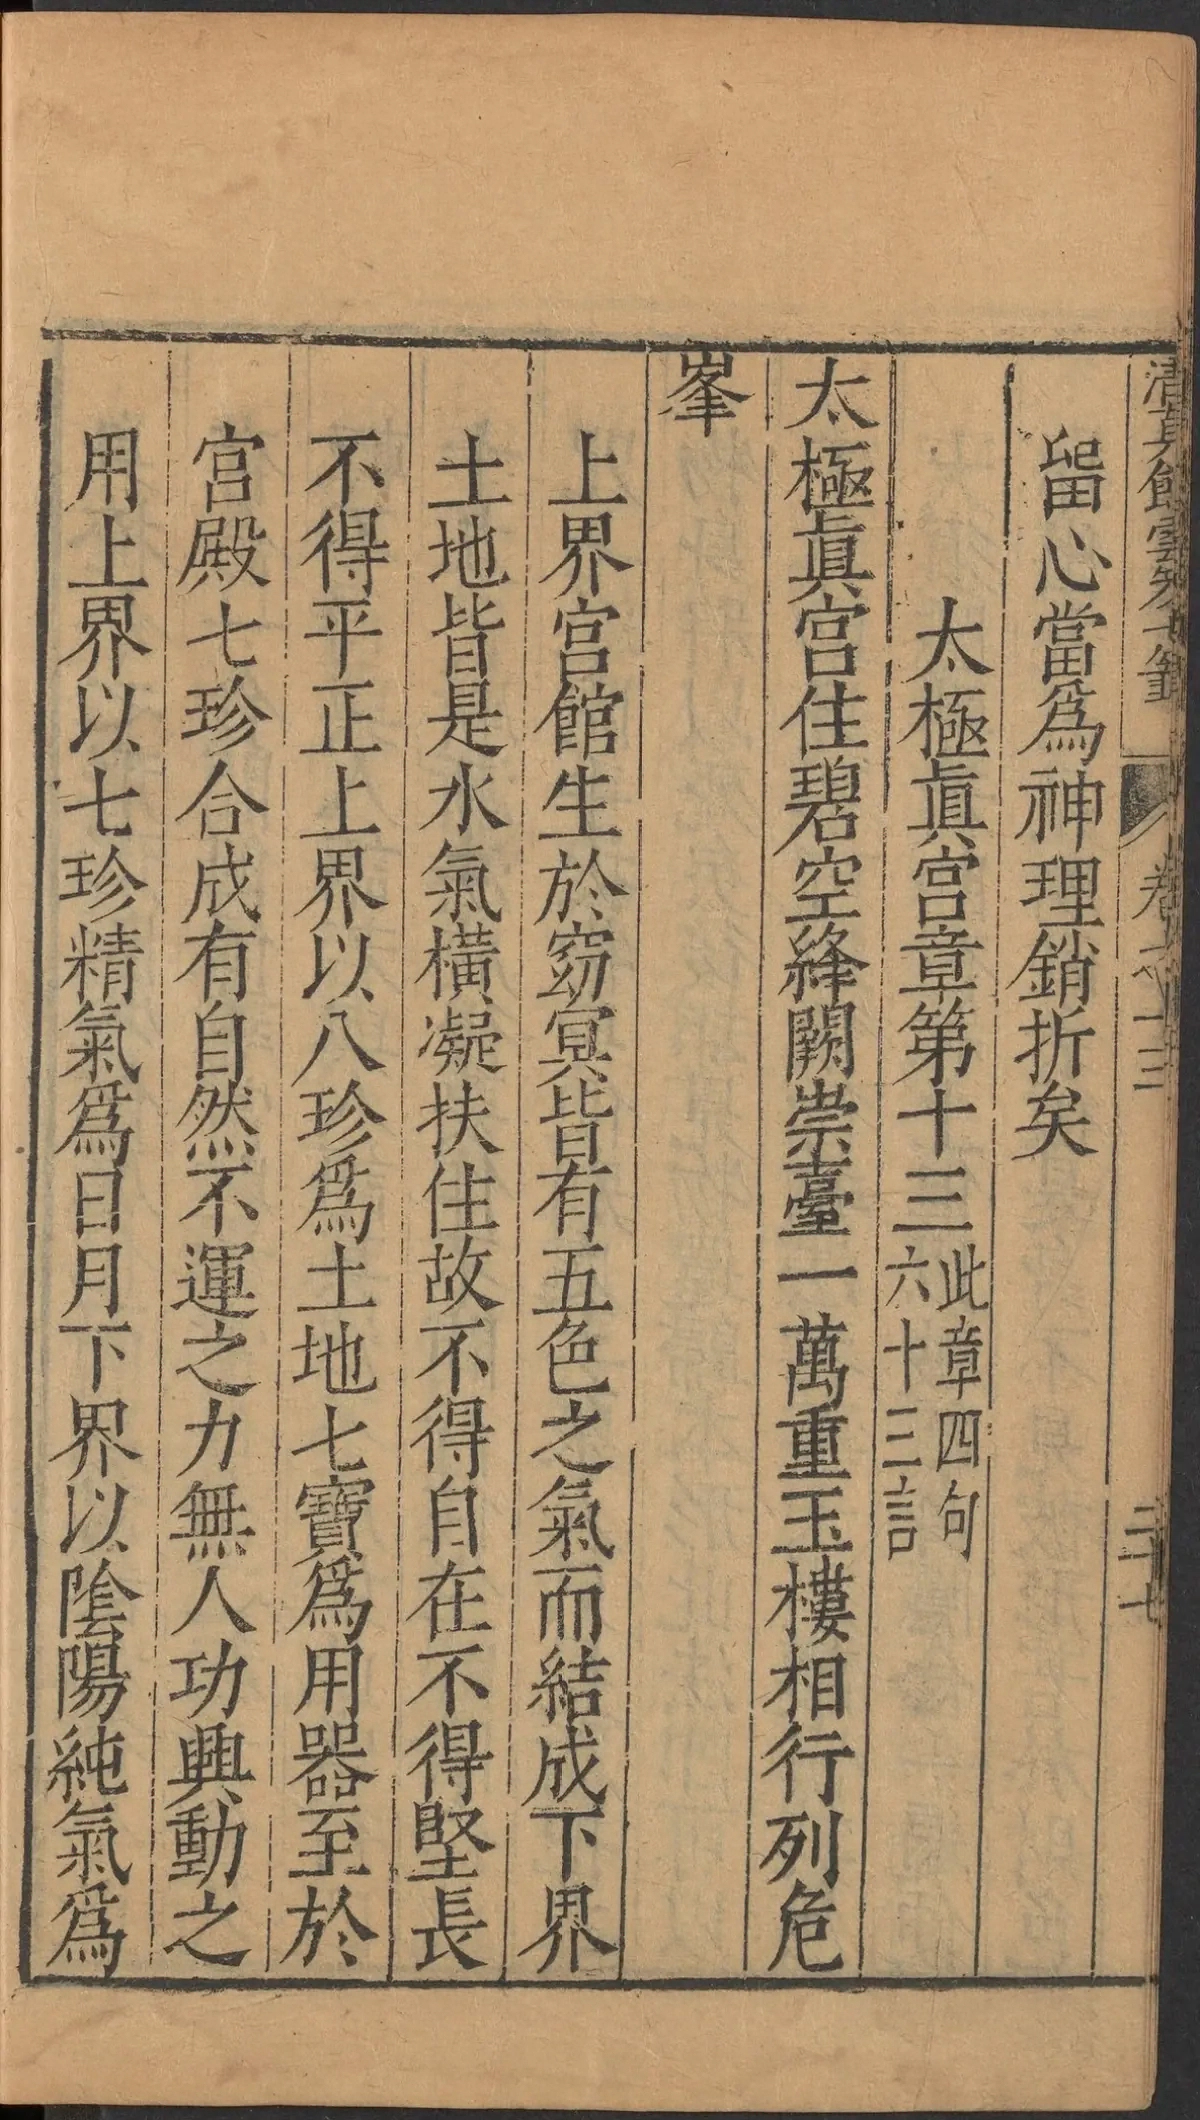 清眞館雲笈七籤 卷之一百三 二十七
畱心當爲神理銷折矣
太極眞宮章第十三此章四句六十三言
太極眞宮住碧空絳闕崇臺一萬重玉樓相行列危
峯
上界宮館生於窈冥皆有五色之氣而結成下界
土地皆是水氣橫凝扶住故不得自在不得堅長
不得平正上界以八珍爲土地七寶爲用器至於
宮殿七珍合成有自然不運之力無人功興動之
用上界以七珍精氣爲日月下界以陰陽純氣爲